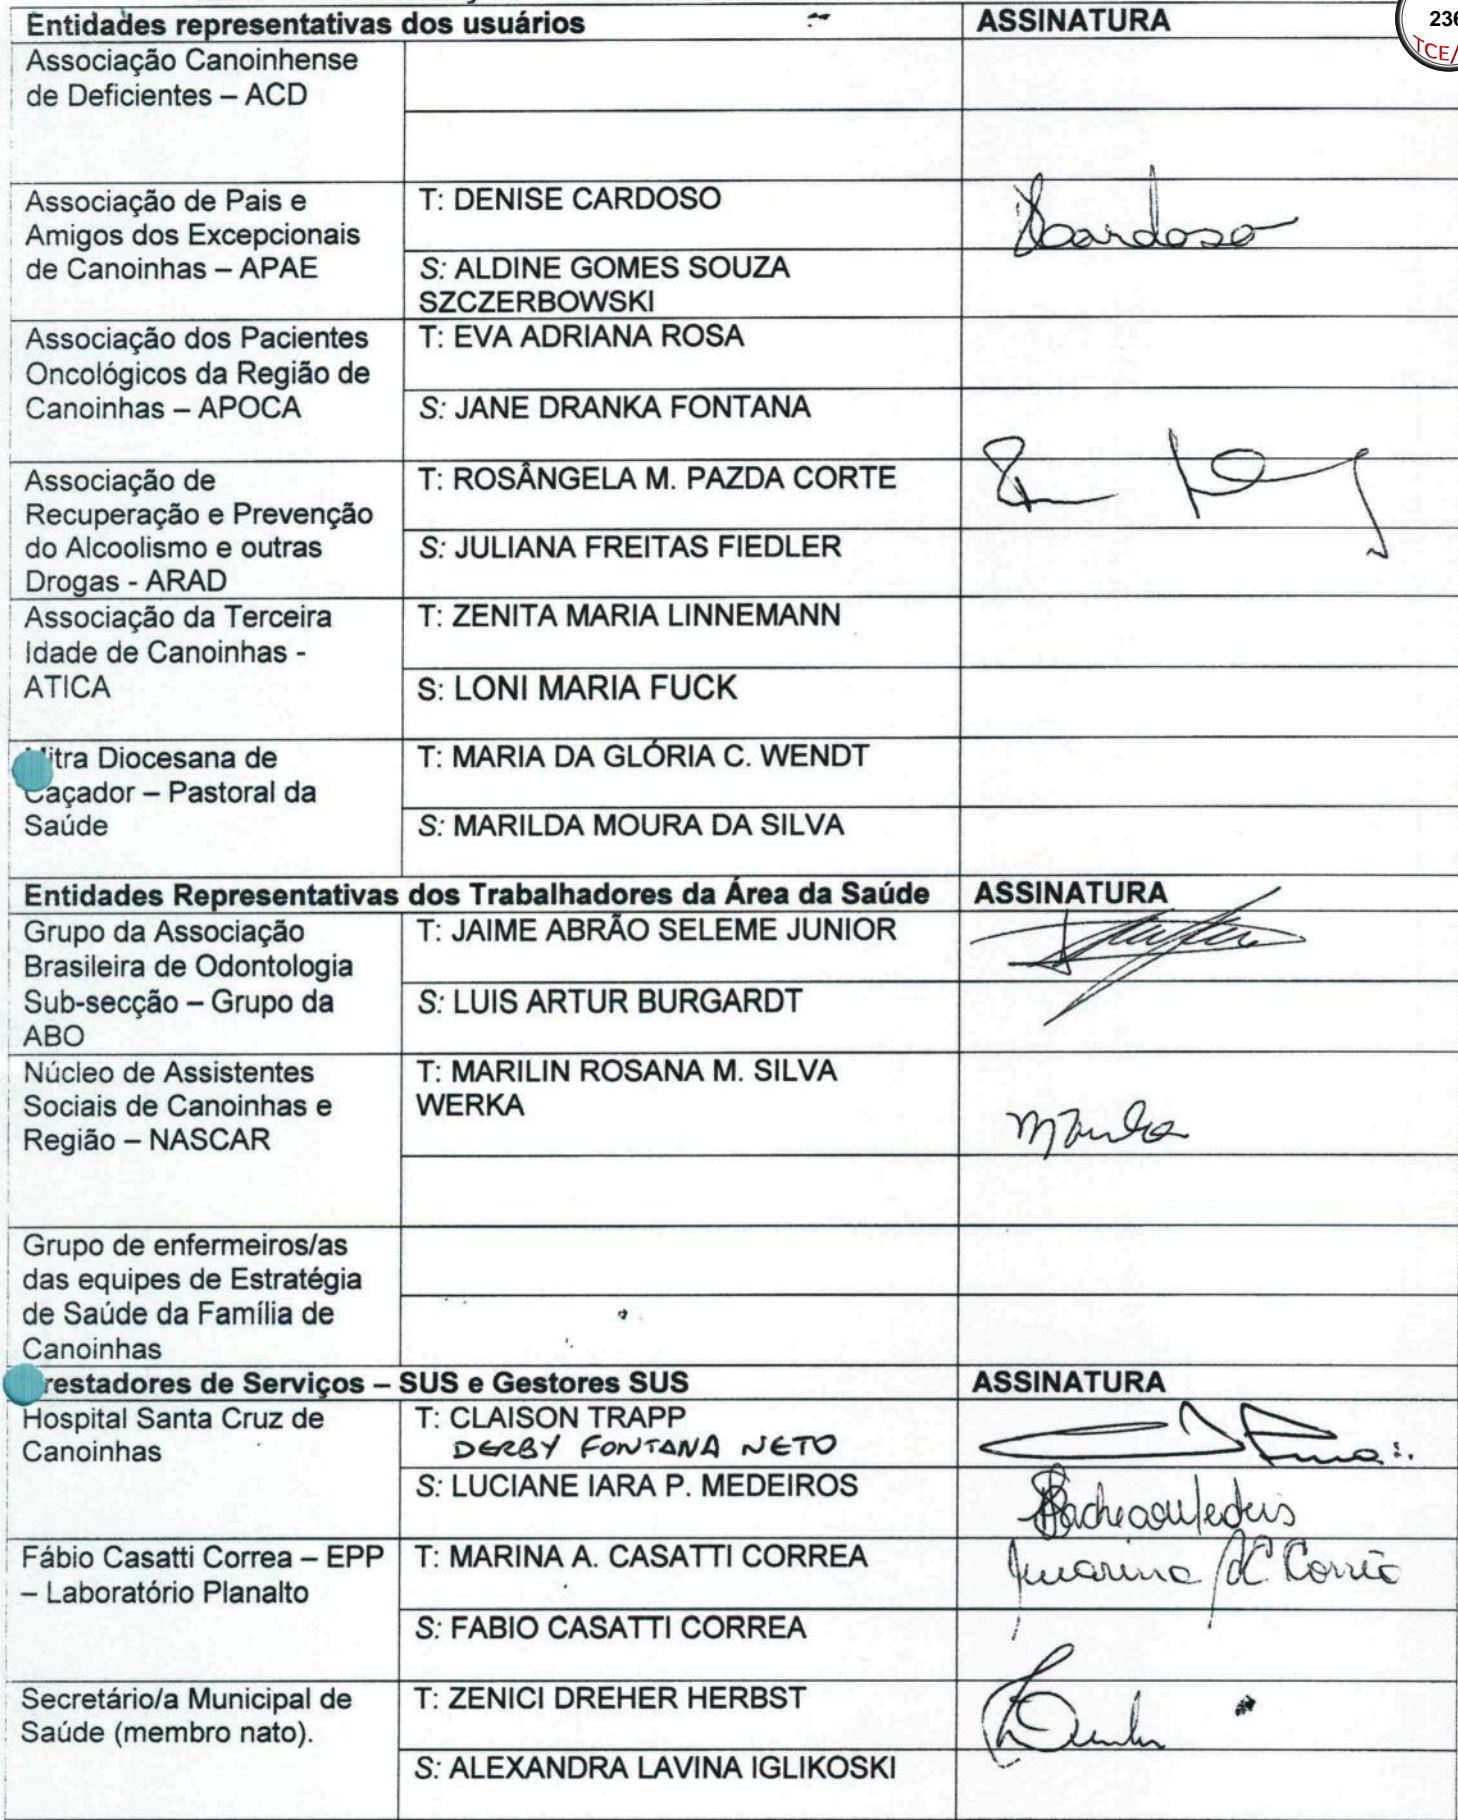 Entidades representativas dos usuários
ASSINATURA
236
TCE/
Associação Canoinhense
de Deficientes – ACD
Associação de Pais e
Amigos dos Excepcionais
de Canoinhas – APAE
T: DENISE CARDOSO
Cardoso
S: ALDINE GOMES SOUZA
SZCZERBOWSKI
Associação dos Pacientes
Oncológicos da Região de
Canoinhas – APOCA
T: EVA ADRIANA ROSA
S: JANE DRANKA FONTANA
Associação de
Recuperação e Prevenção
do Alcoolismo e outras
Drogas - ARAD
T: ROSÂNGELA M. PAZDA CORTE
S: JULIANA FREITAS FIEDLER
Associação da Terceira
Idade de Canoinhas -
ATICA
T: ZENITA MARIA LINNEMANN
S: LONI MARIA FUCK
itra Diocesana de
Caçador – Pastoral da
Saúde
T: MARIA DA GLÓRIA C. WENDT
S: MARILDA MOURA DA SILVA
Entidades Representativas dos Trabalhadores da Área da Saúde
ASSINATURA
Grupo da Associação
Brasileira de Odontologia
Sub-secção – Grupo da
ABO
T: JAIME ABRÃO SELEME JUNIOR
S: LUIS ARTUR BURGARDT
Núcleo de Assistentes
Sociais de Canoinhas e
Região – NASCAR
T: MARILIN ROSANA M. SILVA
WERKA
Grupo de enfermeiros/as
das equipes de Estratégia
de Saúde da Família de
Canoinhas
restadores de Serviços – SUS e Gestores SUS
ASSINATURA
Hospital Santa Cruz de
Canoinhas
T: CLAISON TRAPP
DERBY FONTANA NETO
S: LUCIANE IARA P. MEDEIROS
Fábio Casatti Correa – EPP
– Laboratório Planalto
T: MARINA A. CASATTI CORREA
Marina AC Corrêa
S: FABIO CASATTI CORREA
Secretário/a Municipal de
Saúde (membro nato).
T: ZENICI DREHER HERBST
S: ALEXANDRA LAVINA IGLIKOSKI